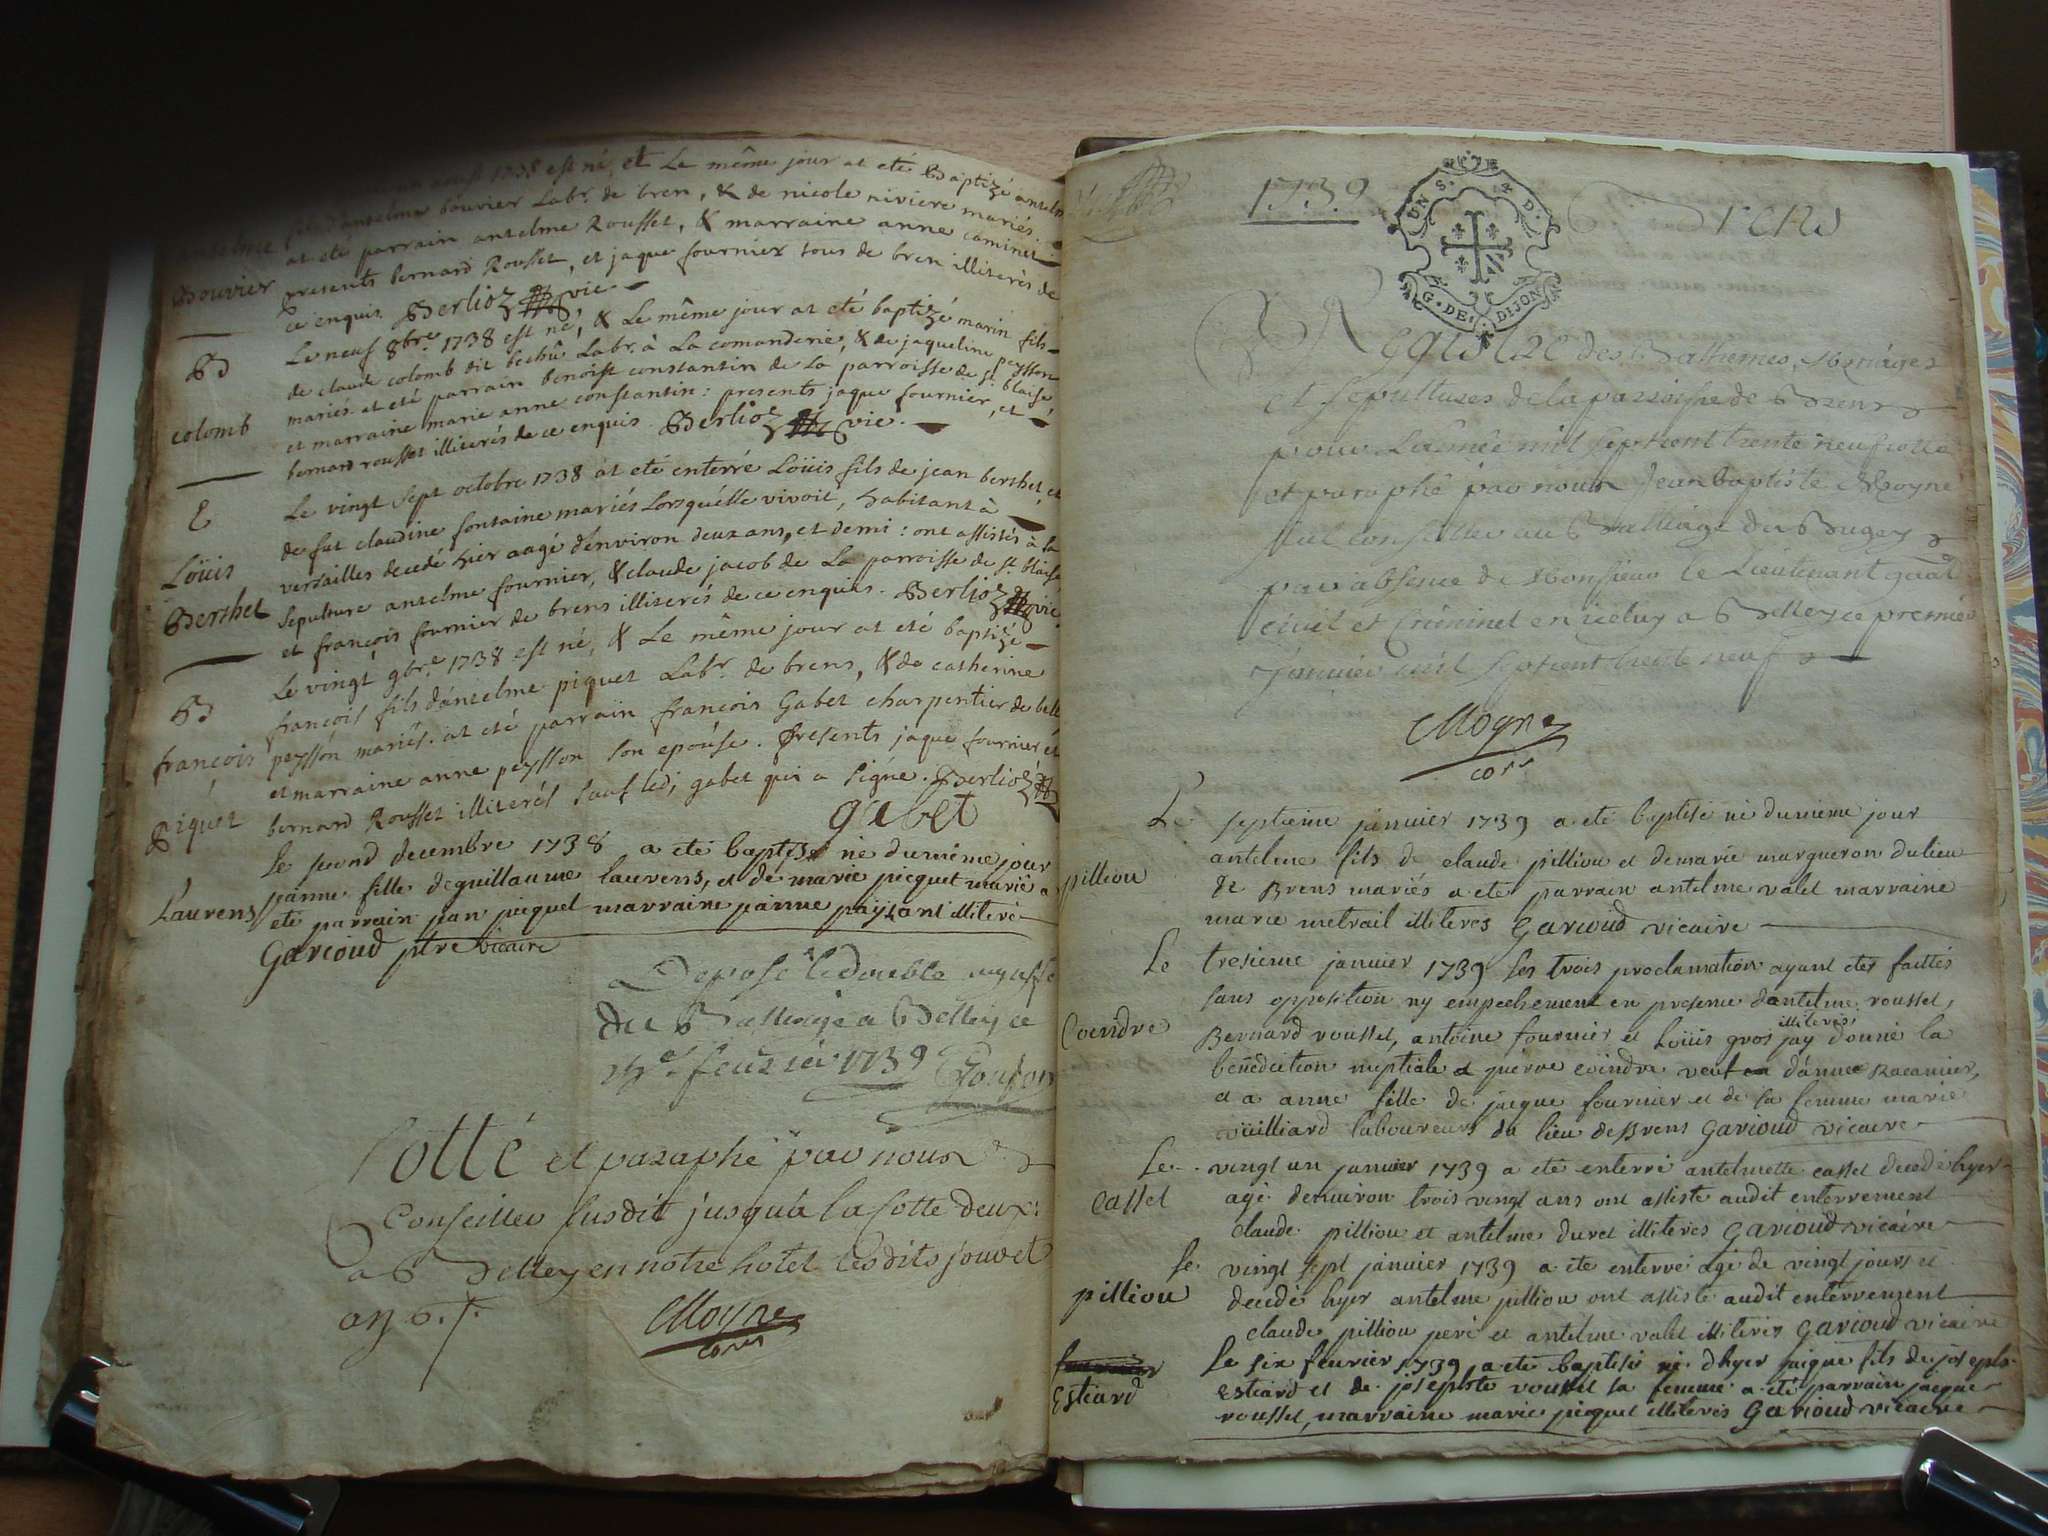 1738 est né, et Le même jour at eté Baptizé antelme
fils d'antelme bouvier Labr. de bren, & de nicole riviere mariés.
at eté parrain antelme Rousset, & marraine anne caminet
Bouvier presents bernard Rousset, et jaque fournier tous de bren illiterés de
ce enquis Berlioz vic.
B Le neuf 8bre 1738 est né, & Le même jour at eté baptizé marin fils
de claude colomb dit bechû Labr. à La comanderie, & de jaqueline peysson
mariés. at eté parrain benoist constantin de La parroisse de st. blaise
colomb et marraine marie anne constantin: presents jaque fournier, et
bernard rousset illiterés de ce enquis. Berlioz vic.
E Le vingt sept octobre 1738 at eté enterré Loüis fils de jean berthet, et
de fut claudine fontaine mariés Lorsquélle vivoit, habitant à
Loüis versailles decedé hier aagé d'environ deux ans, et demi: ont assistés à la
Berthet sepulture antelme fournier, & claude jacob de La parroisse de st. blaise
et françois fournier de brens illiterés de ce enquis. Berlioz vic.
B Le vingt 9bre 1738 est né, & Le même jour at eté baptizé
françois fils d'antelme piquet Labr. de brens, & de catherine
françois peyssón mariés. at eté parrain francois Gabet charpentier de bell
et marraine anne peysson son epoúse. Presents jaque fournier et
Piquet bernard Rousset illiterés sauf ledi gabet qui a signé. Berlioz
gabet
Le second decembre 1738 a eté baptisé né du mëme jour
Laurens panne fille de guillaume laurens, et de marie picquet mariè a
eté parrain pan picquet marraine panne paysant illiteré
Garioud ptre vicaire
Deposé le double au greffe
du Balliage a Belley ce
fevrier 1739
Cotté et paraphé par nous
Conseiller susdit jusqu'a la Cotte deux
a Belley en notre hotel lesdits jour et
an
Moyne
cons
1739 Brens
UN S. 4 D.
G. DE DIJON
Registre des Bathemes, Mariages
et sepultures de la parroisse de Brens
pour Lannée mil sept cent trente neuf cotté
et paraphé par nous Jean baptiste Moyne
conseiller au Balliage du Bugey
par absence de Monsieur le Lieutenant gnal
civil et Criminel en iceluy a Belley ce premier
Janvier mil sept cent trente neuf
Moyne
cons
Le septieme janvier 1739 a eté baptisé né du meme jour
pilliou antelme fils de claude pilliou et de marie margueron du lieu
de Brens mariés a eté parrain antelme valet marraine
marie metrail illiteres Garioud vicaire
Le tresieme janvier 1739 les trois proclamation ayant eter faittes
sans opposition ny empechement en presense dantelme rousset,
Coendre Bernard rousset, antoine fournier et Loüis gros illiteres jay donné la
benediction nuptiale a pierre coindre veuf d'anne Racamier,
et a anne fille de jacque fournier et de sa femme marie
vüilliard laboureurs du lieu de Brens Garioud vicaire
Le vingt un janvier 1739 a eté enterré antelmette cassel decedé hyer
Cassel agé denviron trois vingt ans ont assisté audit enterrement
claude pilliou et antelme duret illiteres Garioud vicaire
Le vingt sept janvier 1739 a ete enterré agé de vingt jours et
pilliou decedé hyer antelme pilliou ont assisté audit enterrement
claude pilliou peré et antelme valet illiteres Garioud vicaire
Le six fevrier 1739 a eté baptisé né dhyer jaique fils de joseph
Estiard Estiard et de josephte rousset sa femme a eté parrain jacque
rousset, marraine marie picquet illiteres Garioud vicaire